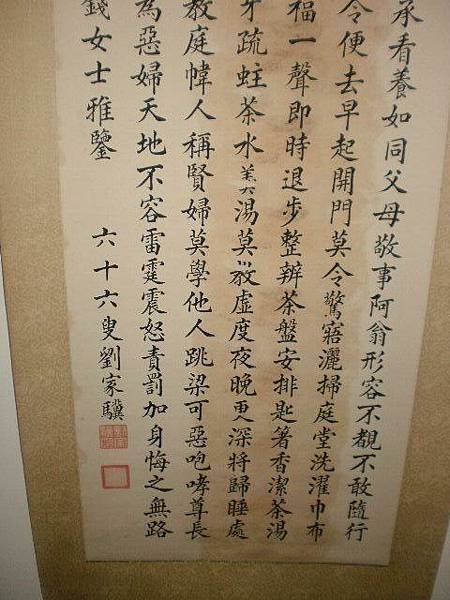 承看養如同父母敬事阿翁形容不覩不敢隨行
令便去早起開門莫令驚寤灑掃庭堂洗濯巾布
福一聲即時退步整辦茶盤安排匙箸香潔茶湯
牙疏蛀茶水羹湯莫教虛度夜晚更深將歸睡處
教庭幃人稱賢婦莫學他人跳梁可惡咆哮尊長
為惡婦天地不容雷霆震怒責罰加身悔之無路
錢女士雅鑒
六十六叟劉家驥